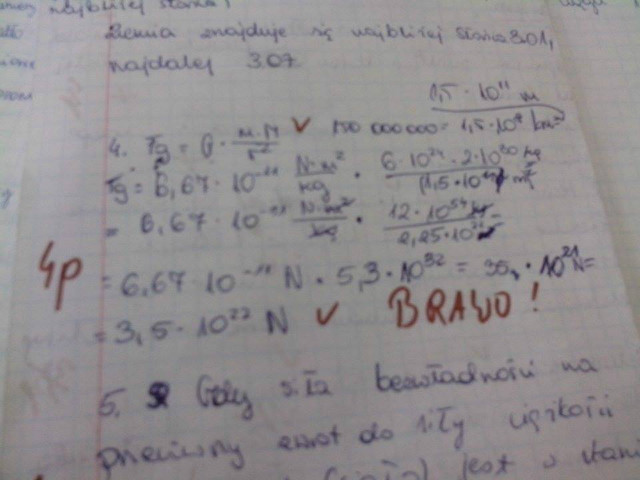 Ziemia znajduje się najbliżej słońca 3.01,
najdalej 3.07
1,5 · 10¹¹ m
4. Fg = G · m·M/r² ✓ 150 000000 = 1,5 · 10⁸ km
Fg = 6,67 · 10⁻¹¹ N·m²/kg · 6·10²⁴ · 2·10³⁰ kg/(1,5·10¹¹)² m²
= 6,67 · 10⁻¹¹ N·m²/kg · 12·10⁵⁴/2,25·10²²
4p
= 6,67 · 10⁻¹¹ N · 5,3 · 10³² = 35, · 10²¹ N =
= 3,5 · 10²² N ✓ BRAWO !
5. Gdy siła bezwładności ma
przeciwny zwrot do siły ciężkości
jest w stani